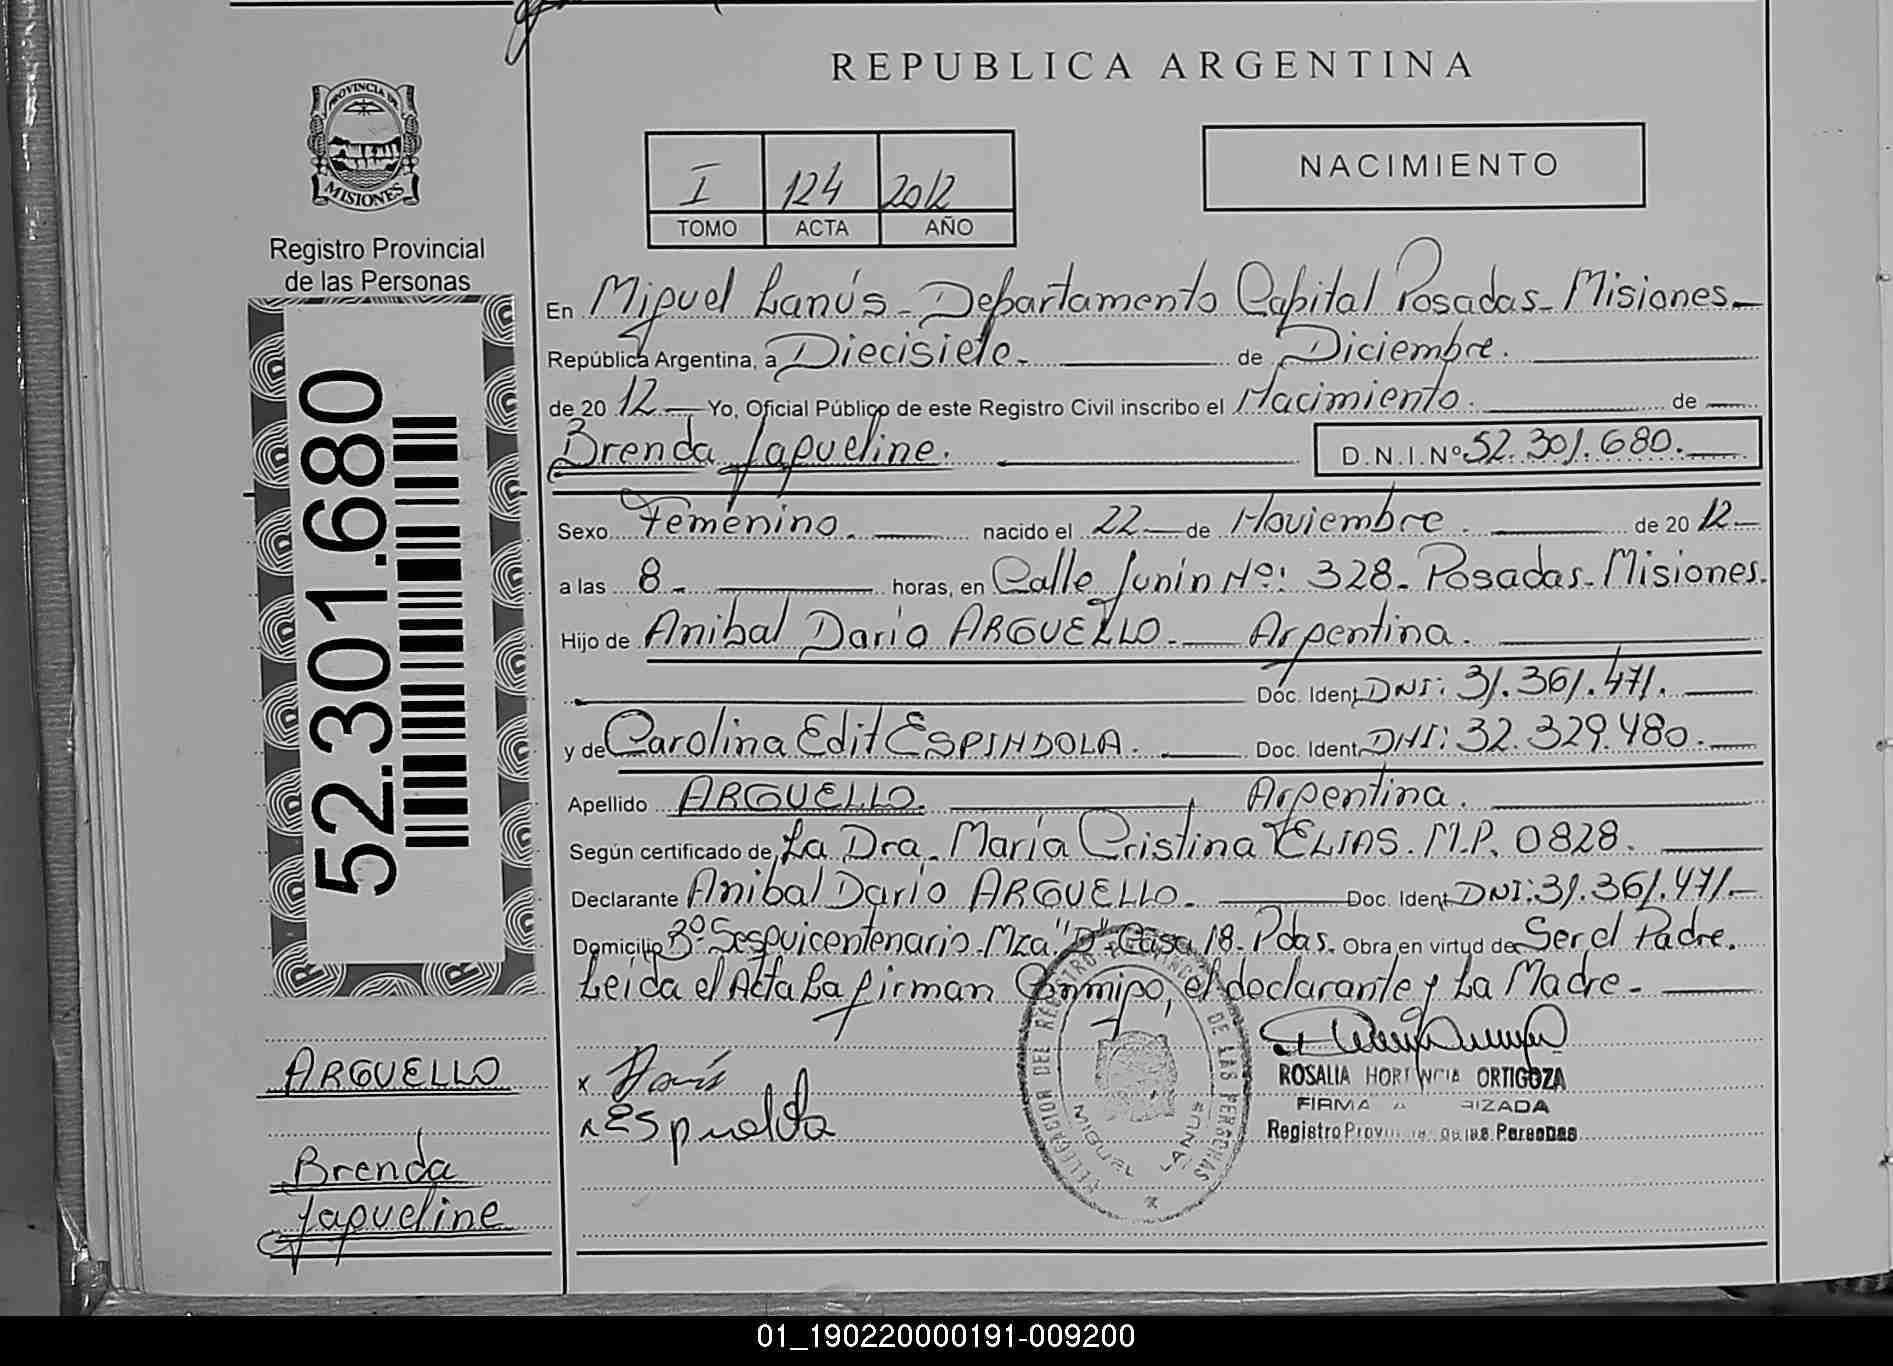 REPUBLICA ARGENTINA
PROVINCIA DE
MISIONES
Registro Provincial
de las Personas
I 124 2012
TOMO ACTA AÑO
NACIMIENTO
52.301.680
En Miguel Lanús - Departamento Capital Posadas - Misiones.
República Argentina, a Diecisiete. de Diciembre.
de 20 12 Yo, Oficial Público de este Registro Civil inscribo el Nacimiento. de
Brenda Jaqueline. D.N.I.Nº 52.301.680.
Sexo Femenino. nacido el 22 de Noviembre. de 20 12
a las 8. horas, en Calle Junín Nº: 328. Posadas - Misiones.
Hijo de Anibal Dario ARGUELLO. Argentina.
Doc. Ident. DNI: 31.361.471.
y de Carolina Edit ESPINDOLA. Doc. Ident. DNI: 32.329.480.
Apellido ARGUELLO. Argentina.
Según certificado de La Dra. María Cristina ELIAS. M.P. 0828.
Declarante Anibal Dario ARGUELLO. Doc. Ident. DNI: 31.361.471.
Domicilio Bº Sesquicentenario. Mza "D" Casa 18. Pdas. Obra en virtud de Ser el Padre.
Leída el Acta La firman Conmigo, el declarante y La Madre.
x Dario
x
DELEGACION DEL REGISTRO PROVINCIAL DE LAS PERSONAS
MIGUEL LANUS
ROSALIA HORTENCIA ORTIGOZA
FIRMA AUTORIZADA
Registro Provincial de las Personas
ARGUELLO
Brenda
Jaqueline
01_190220000191-009200